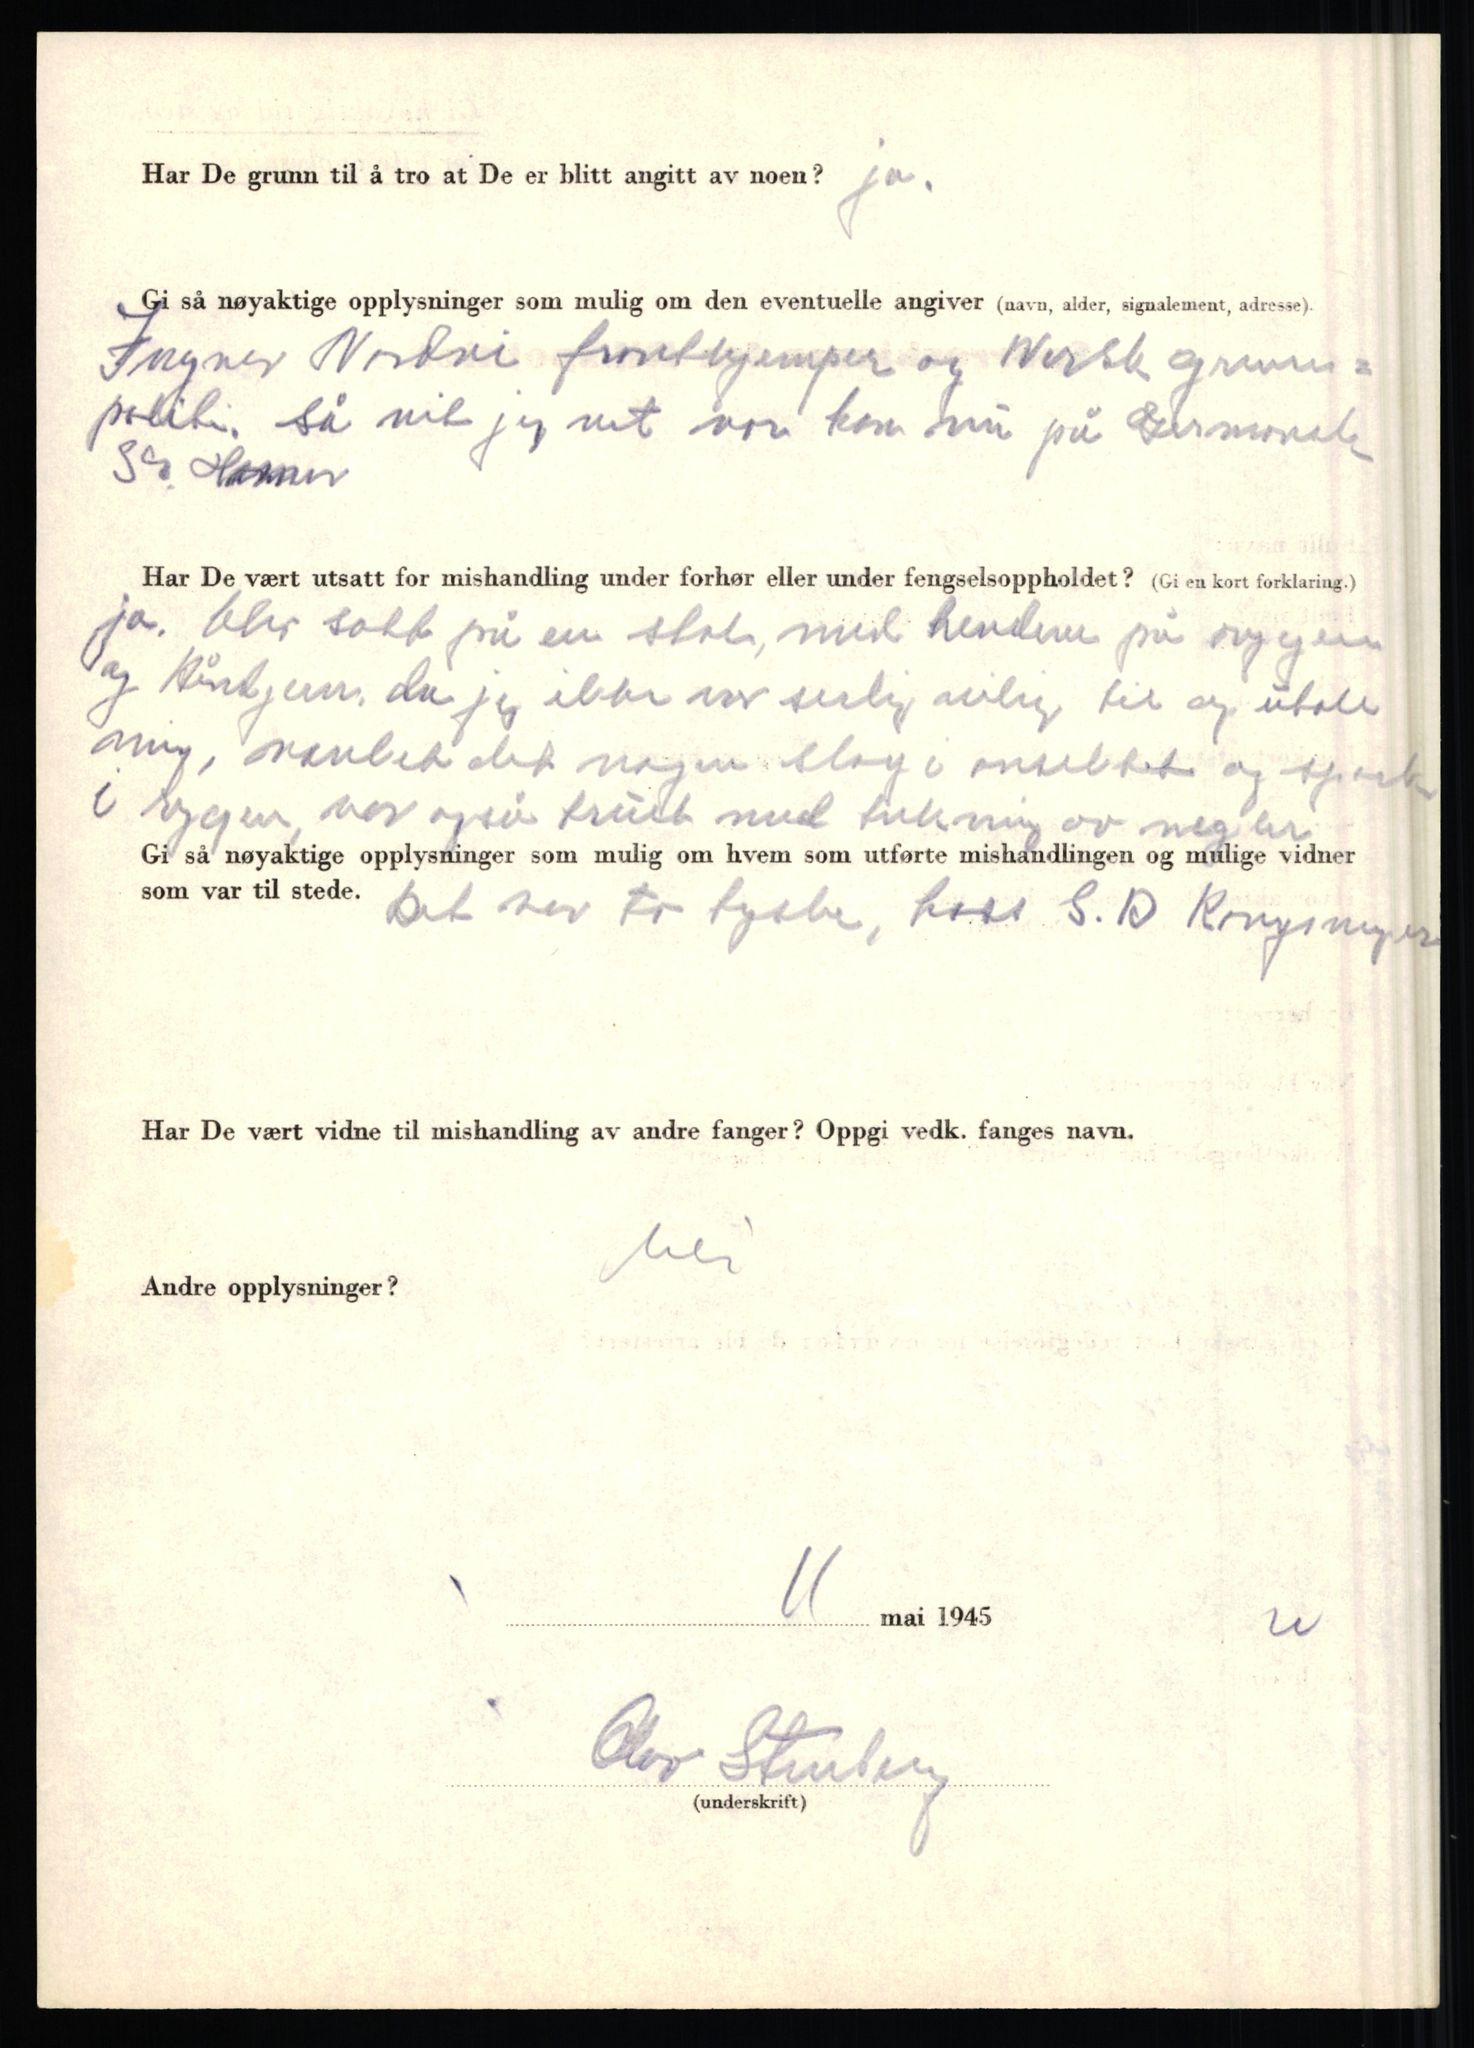 Har De grunn til å tro at De er blitt angitt av noen? ja.
Gi så nøyaktige opplysninger som mulig om den eventuelle angiver (navn, alder, signalement, adresse).
Nordvi frontkjemper og Norsk grense=
politi. Så vit jeg vet var han nu på Germansk
Har De vært utsatt for mishandling under forhør eller under fengselsoppholdet? (Gi en kort forklaring.)
ja. blev satt på en stol, med hendene på ryggen
og Håndjern. da jeg ikke var serlig villig til og utale
mig, vanket det nogen slag i ansektet og spark
i ryggen, var også truet med trekning av negler
Gi så nøyaktige opplysninger som mulig om hvem som utførte mishandlingen og mulige vidner
som var til stede. Det var to tyske, hoss S.D Kongsvinger
Har De vært vidne til mishandling av andre fanger? Oppgi vedk. fanges navn.
Nei
Andre opplysninger?
11 mai 1945
Olav Stenberg
(underskrift)